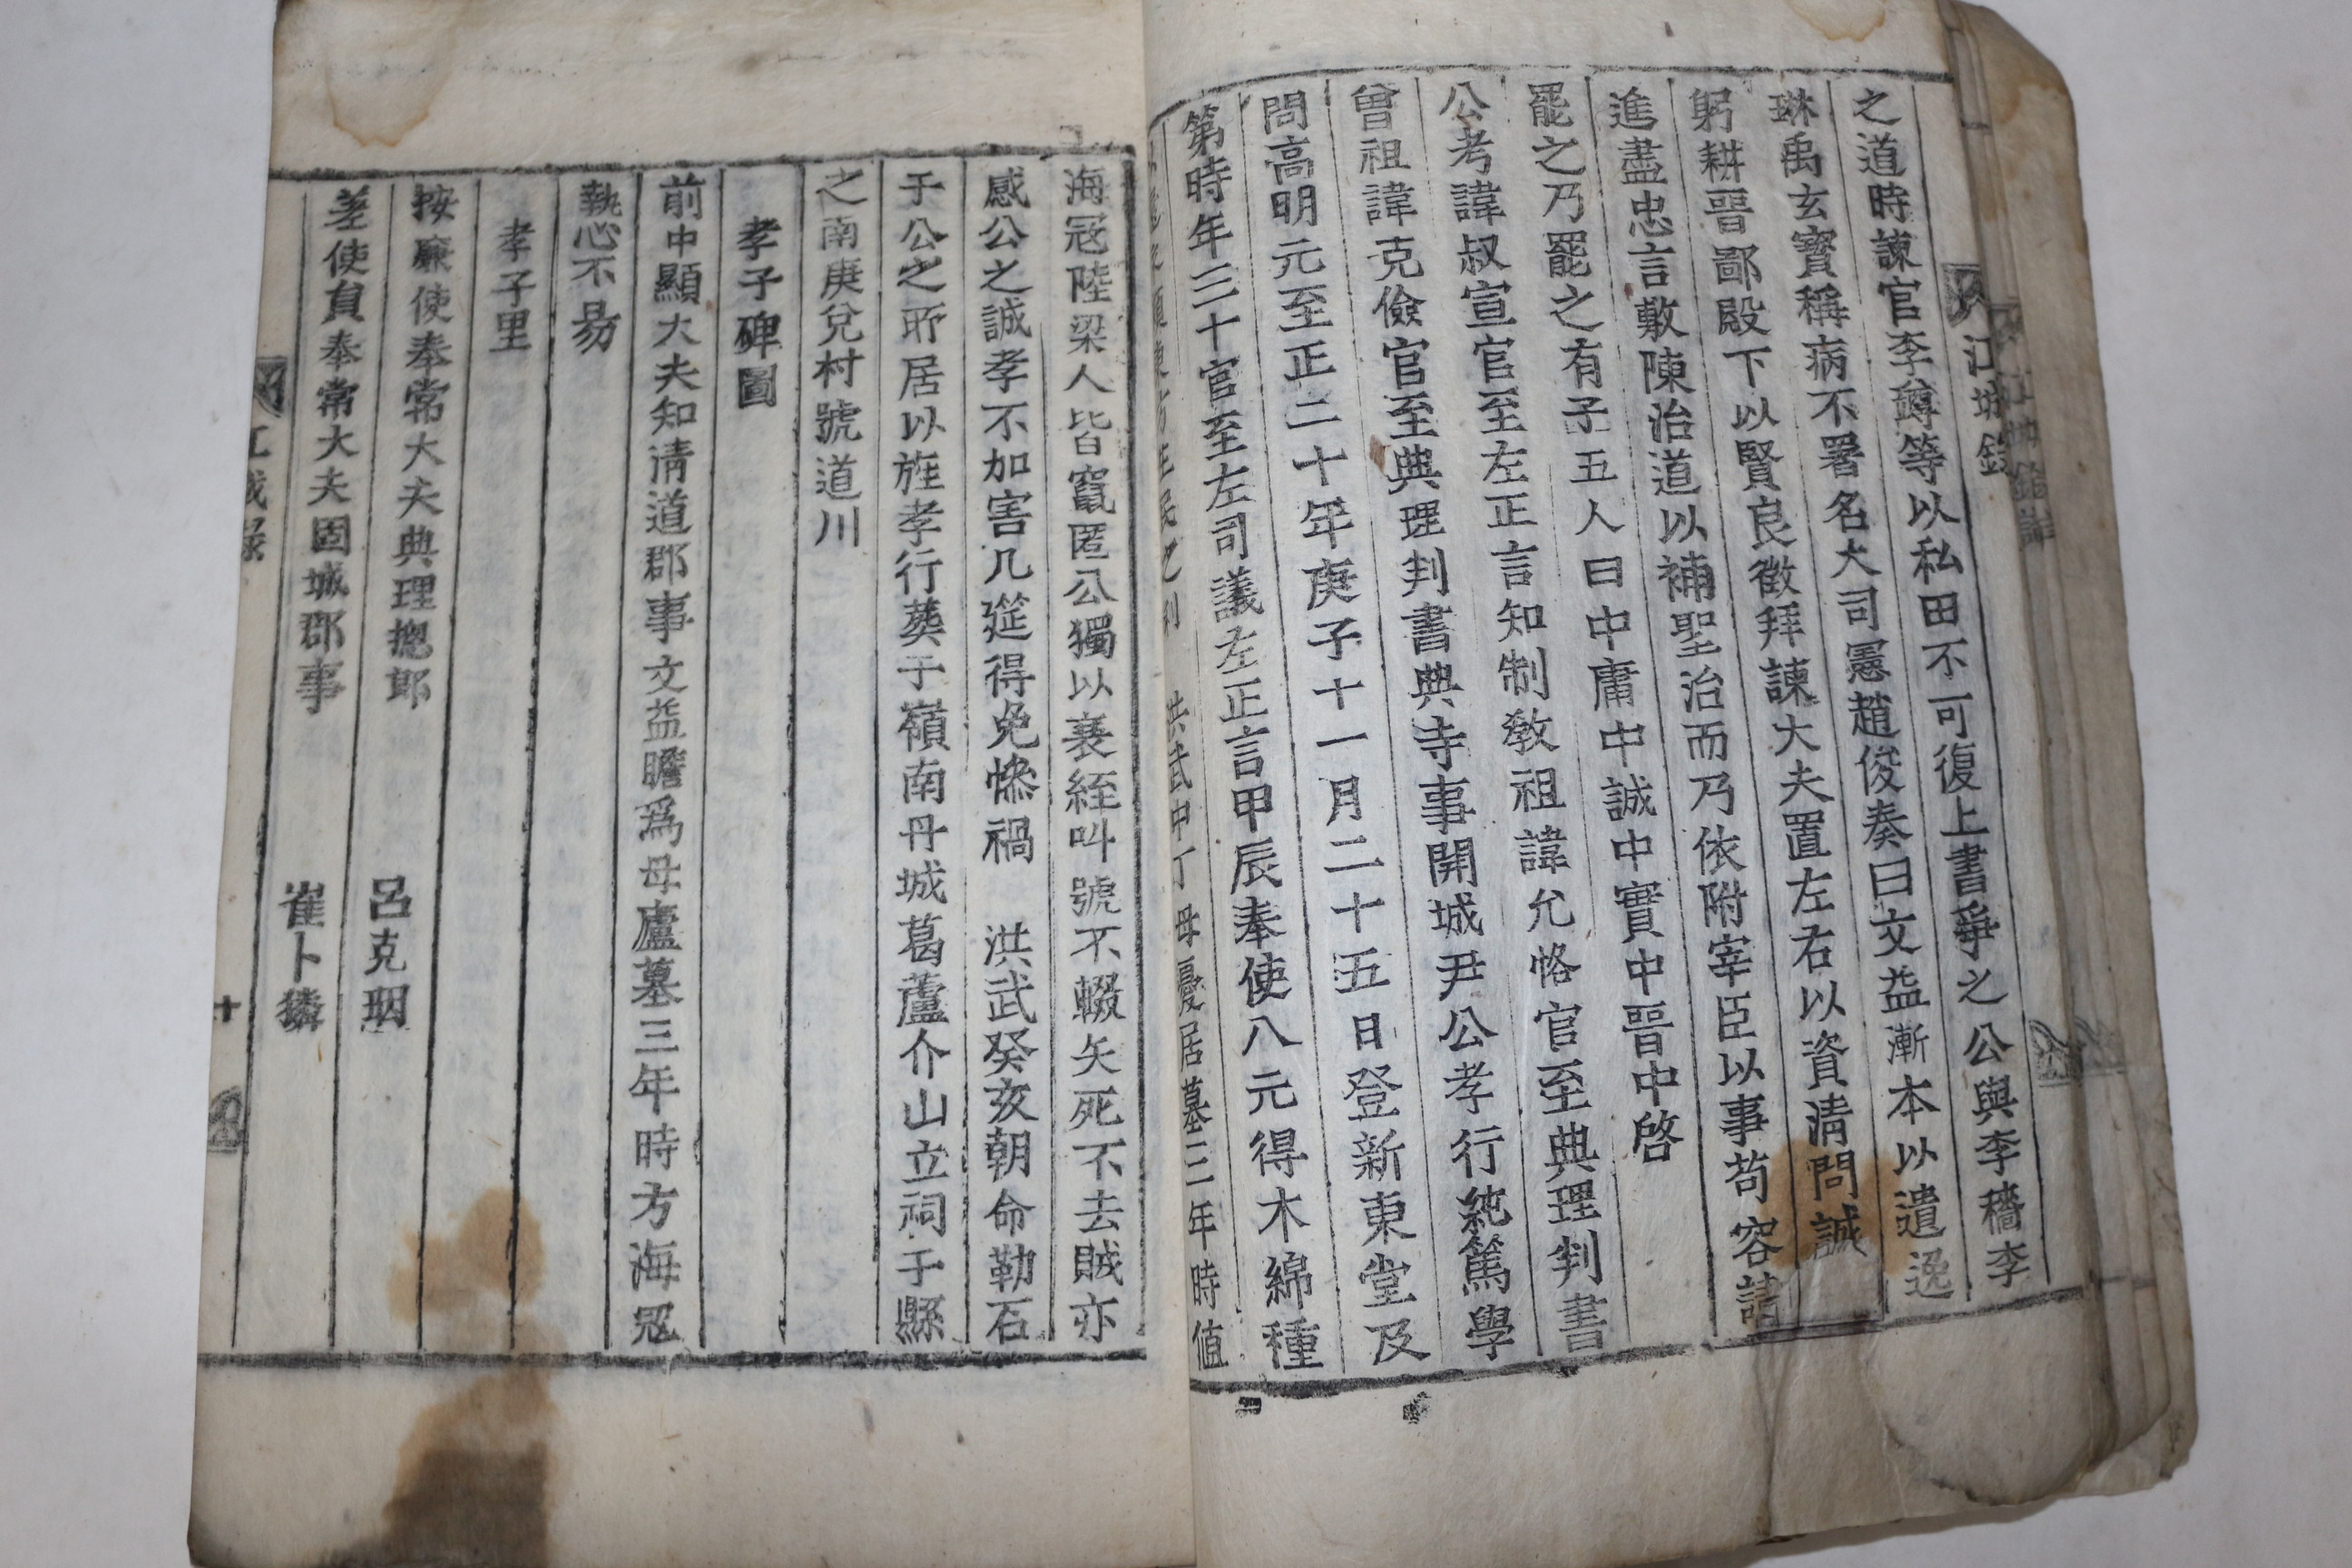 江城錄
之道時諫官李䔲等以私田不可復上書爭之公與李穡李
琳禹玄寳稱病不署名大司憲趙俊奏曰文益漸本以遺逸
躬耕晉鄙殿下以賢良徵拜諫大夫置左右以資清問誠
進盡忠言敷陳治道以補聖治而乃依附宰臣以事苟容請
罷之乃罷之有子五人曰中庸中誠中實中晉中啓
公考諱叔宣官至左正言知制敎祖諱允恪官至典理判書
曾祖諱克儉官至典理判書典寺事開城尹公孝行純篤學
問高明元至正二十年庚子十一月二十五日登新東堂及
第時年三十官至左司議左正言甲辰奉使八元得木綿種
洪武中丁母憂居墓三年時值
海冦陸梁人皆竄匿公獨以衰絰叫號不輟矢死不去賊亦
感公之誠孝不加害几筵得免慘禍 洪武癸亥朝命勒石
于公之所居以旌孝行葬于嶺南丹城葛蘆介山立祠于縣
之南庚兌村號道川
孝子碑圖
前中顯大夫知清道郡事文益瞻爲母廬墓三年時方海冦
執心不易
孝子里
按廉使奉常大夫典理摠郎 呂克珚
差使負奉常大夫固城郡事 崔卜獜
江城錄 十